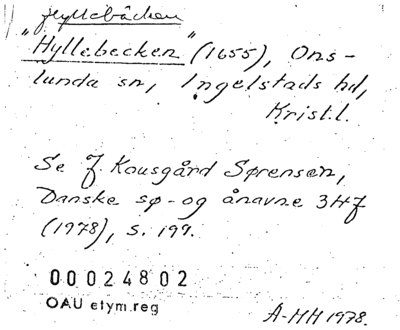 Hyllebäcken
"Hyllebecken" (1655), Ons-
lunda sn, Ingelstads hd,
Krist.l.
Se J. Kousgård Sørensen,
Danske sø- og ånavne 3 H-J
(1978), s. 199.
00024802
OAU etym.reg
A-HH 1978.